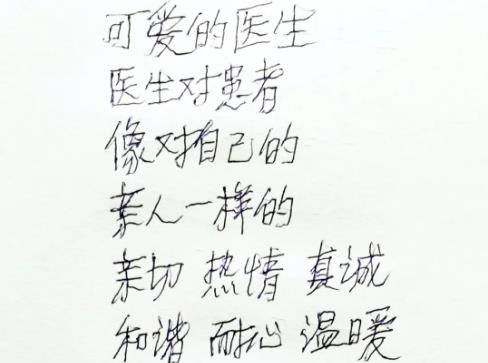 可爱的医生
医生对患者
像对自己的
亲人一样的
亲切 热情 真诚
和谐 耐心 温暖